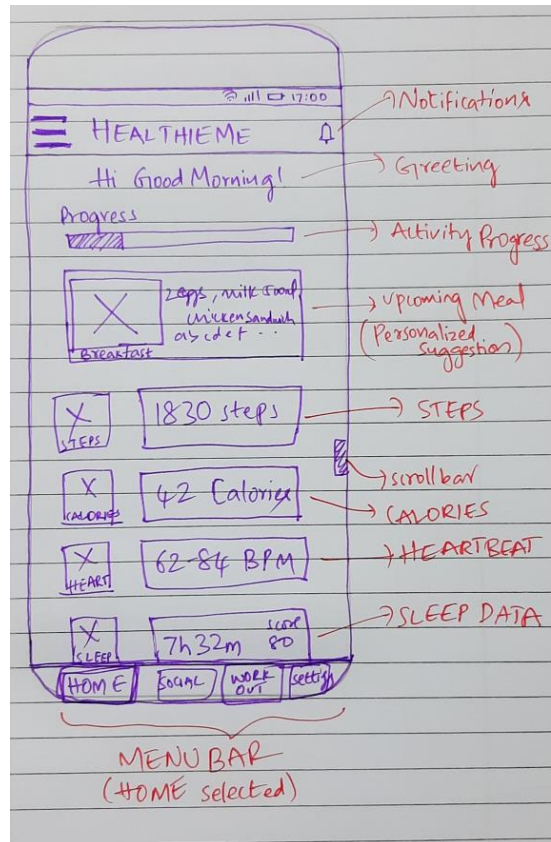 17:00
HEALTHIEME
Notifications
Hi Good Morning!
Greeting
Progress
Activity Progress
2 eggs, milk
chicken sandwich
abcdef ...
Breakfast
Upcoming Meal
(Personalized
Suggestion)
STEPS
1830 steps
STEPS
scrollbar
CALORIES
42 Calories
CALORIES
HEART
62-84 BPM
HEARTBEAT
SLEEP
7h 32m
score
80
SLEEP DATA
HOME
SOCIAL
WORK
OUT
MENU BAR
(HOME selected)